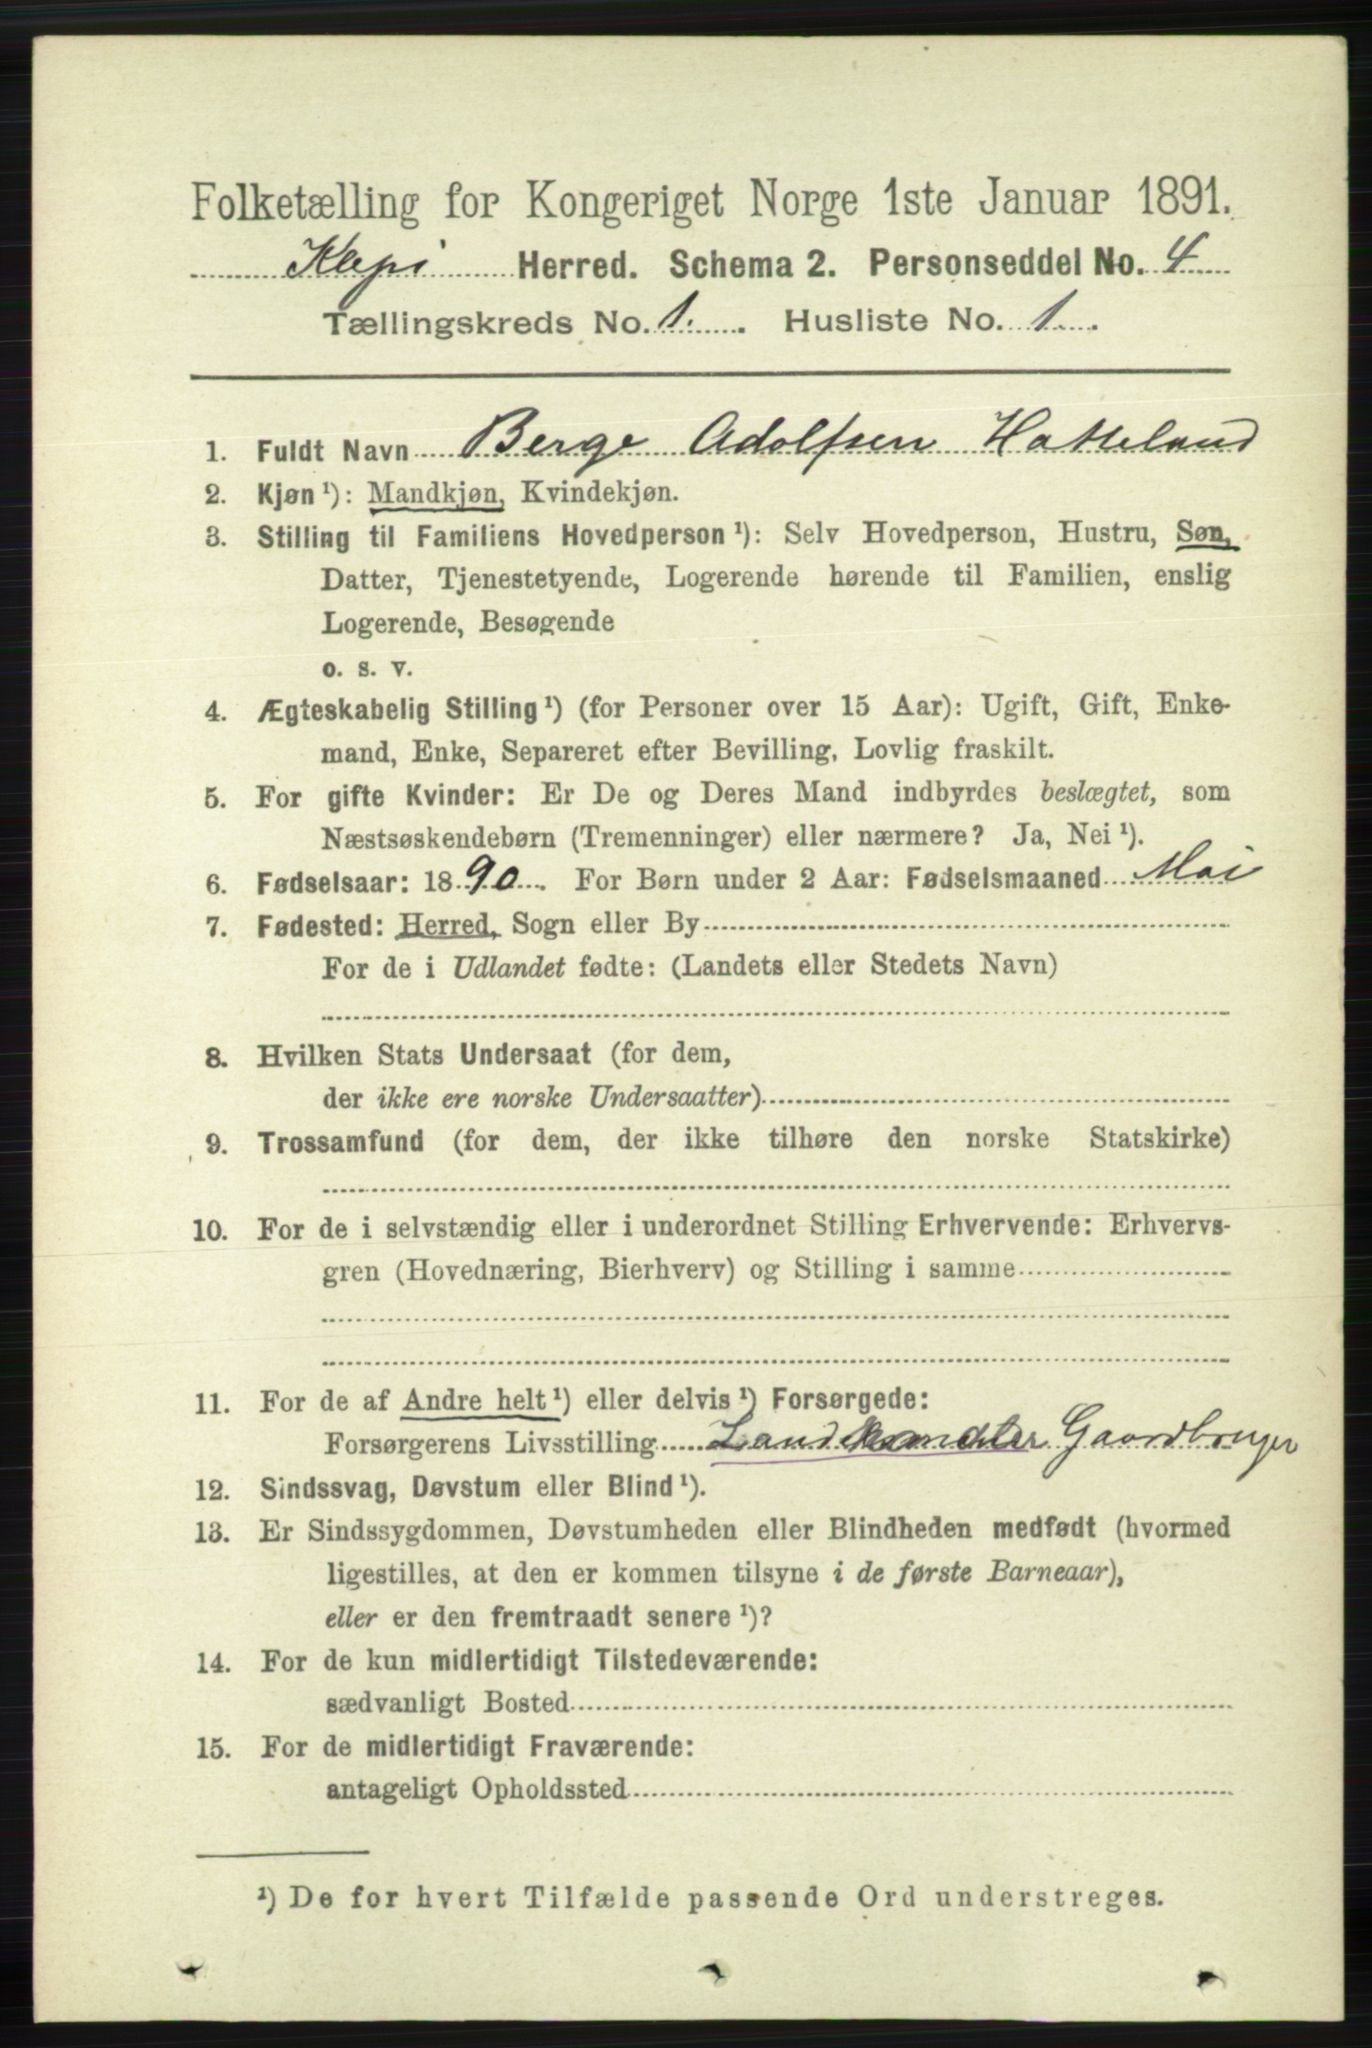 Folketælling for Kongeriget Norge 1ste Januar 1891.
Klepi Herred. Schema 2. Personseddel No. 4
Tællingskreds No. 1. Husliste No. 1.
1. Fuldt Navn Berge Adolfsen Hatteland
2. Kjøn ¹): Mandkjøn, Kvindekjøn.
3. Stilling til Familiens Hovedperson ¹): Selv Hovedperson, Hustru, Søn,
Datter, Tjenestetyende, Logerende hørende til Familien, enslig
Logerende, Besøgende
o. s. v.
4. Ægteskabelig Stilling ¹) (for Personer over 15 Aar): Ugift, Gift, Enke-
mand, Enke, Separeret efter Bevilling, Lovlig fraskilt.
5. For gifte Kvinder: Er De og Deres Mand indbyrdes beslægtet, som
Næstsøskendebørn (Tremenninger) eller nærmere? Ja, Nei ¹).
6. Fødselsaar: 1890. For Børn under 2 Aar: Fødselsmaaned Mai
7. Fødested: Herred, Sogn eller By
For de i Udlandet fødte: (Landets eller Stedets Navn)
8. Hvilken Stats Undersaat (for dem,
der ikke ere norske Undersaatter)
9. Trossamfund (for dem, der ikke tilhøre den norske Statskirke)
10. For de i selvstændig eller i underordnet Stilling Erhvervende: Erhvervs-
gren (Hovednæring, Bierhverv) og Stilling i samme
11. For de af Andre helt ¹) eller delvis ¹) Forsørgede:
Forsørgerens Livsstilling Landhandler Gaardbruger
12. Sindssvag, Døvstum eller Blind ¹).
13. Er Sindssygdommen, Døvstumheden eller Blindheden medfødt (hvormed
ligestilles, at den er kommen tilsyne i de første Barneaar),
eller er den fremtraadt senere ¹)?
14. For de kun midlertidigt Tilstedeværende:
sædvanligt Bosted
15. For de midlertidigt Fraværende:
antageligt Opholdssted
¹) De for hvert Tilfælde passende Ord understreges.